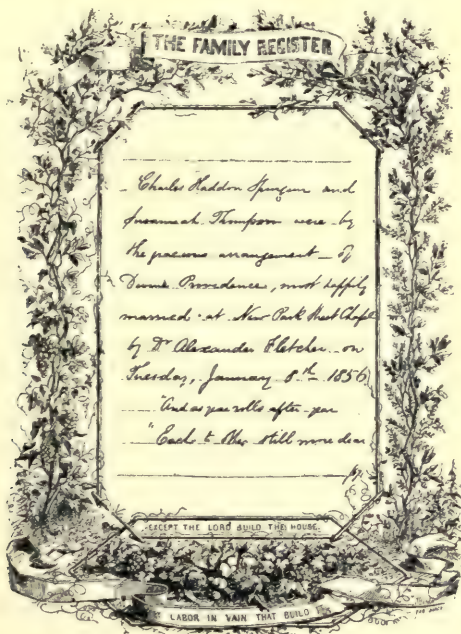 THE FAMILY REGISTER
Charles Haddon Spurgeon and
Susannah Thompson were by
the gracious arrangement of
Divine Providence, most happily
married at New Park Street Chapel
by Dr Alexander Fletcher on
Tuesday, January 8th 1856
"And as year rolls after year
"Each to other still more dear
EXCEPT THE LORD BUILD THE HOUSE.
LABOR IN VAIN THAT BUILD IT